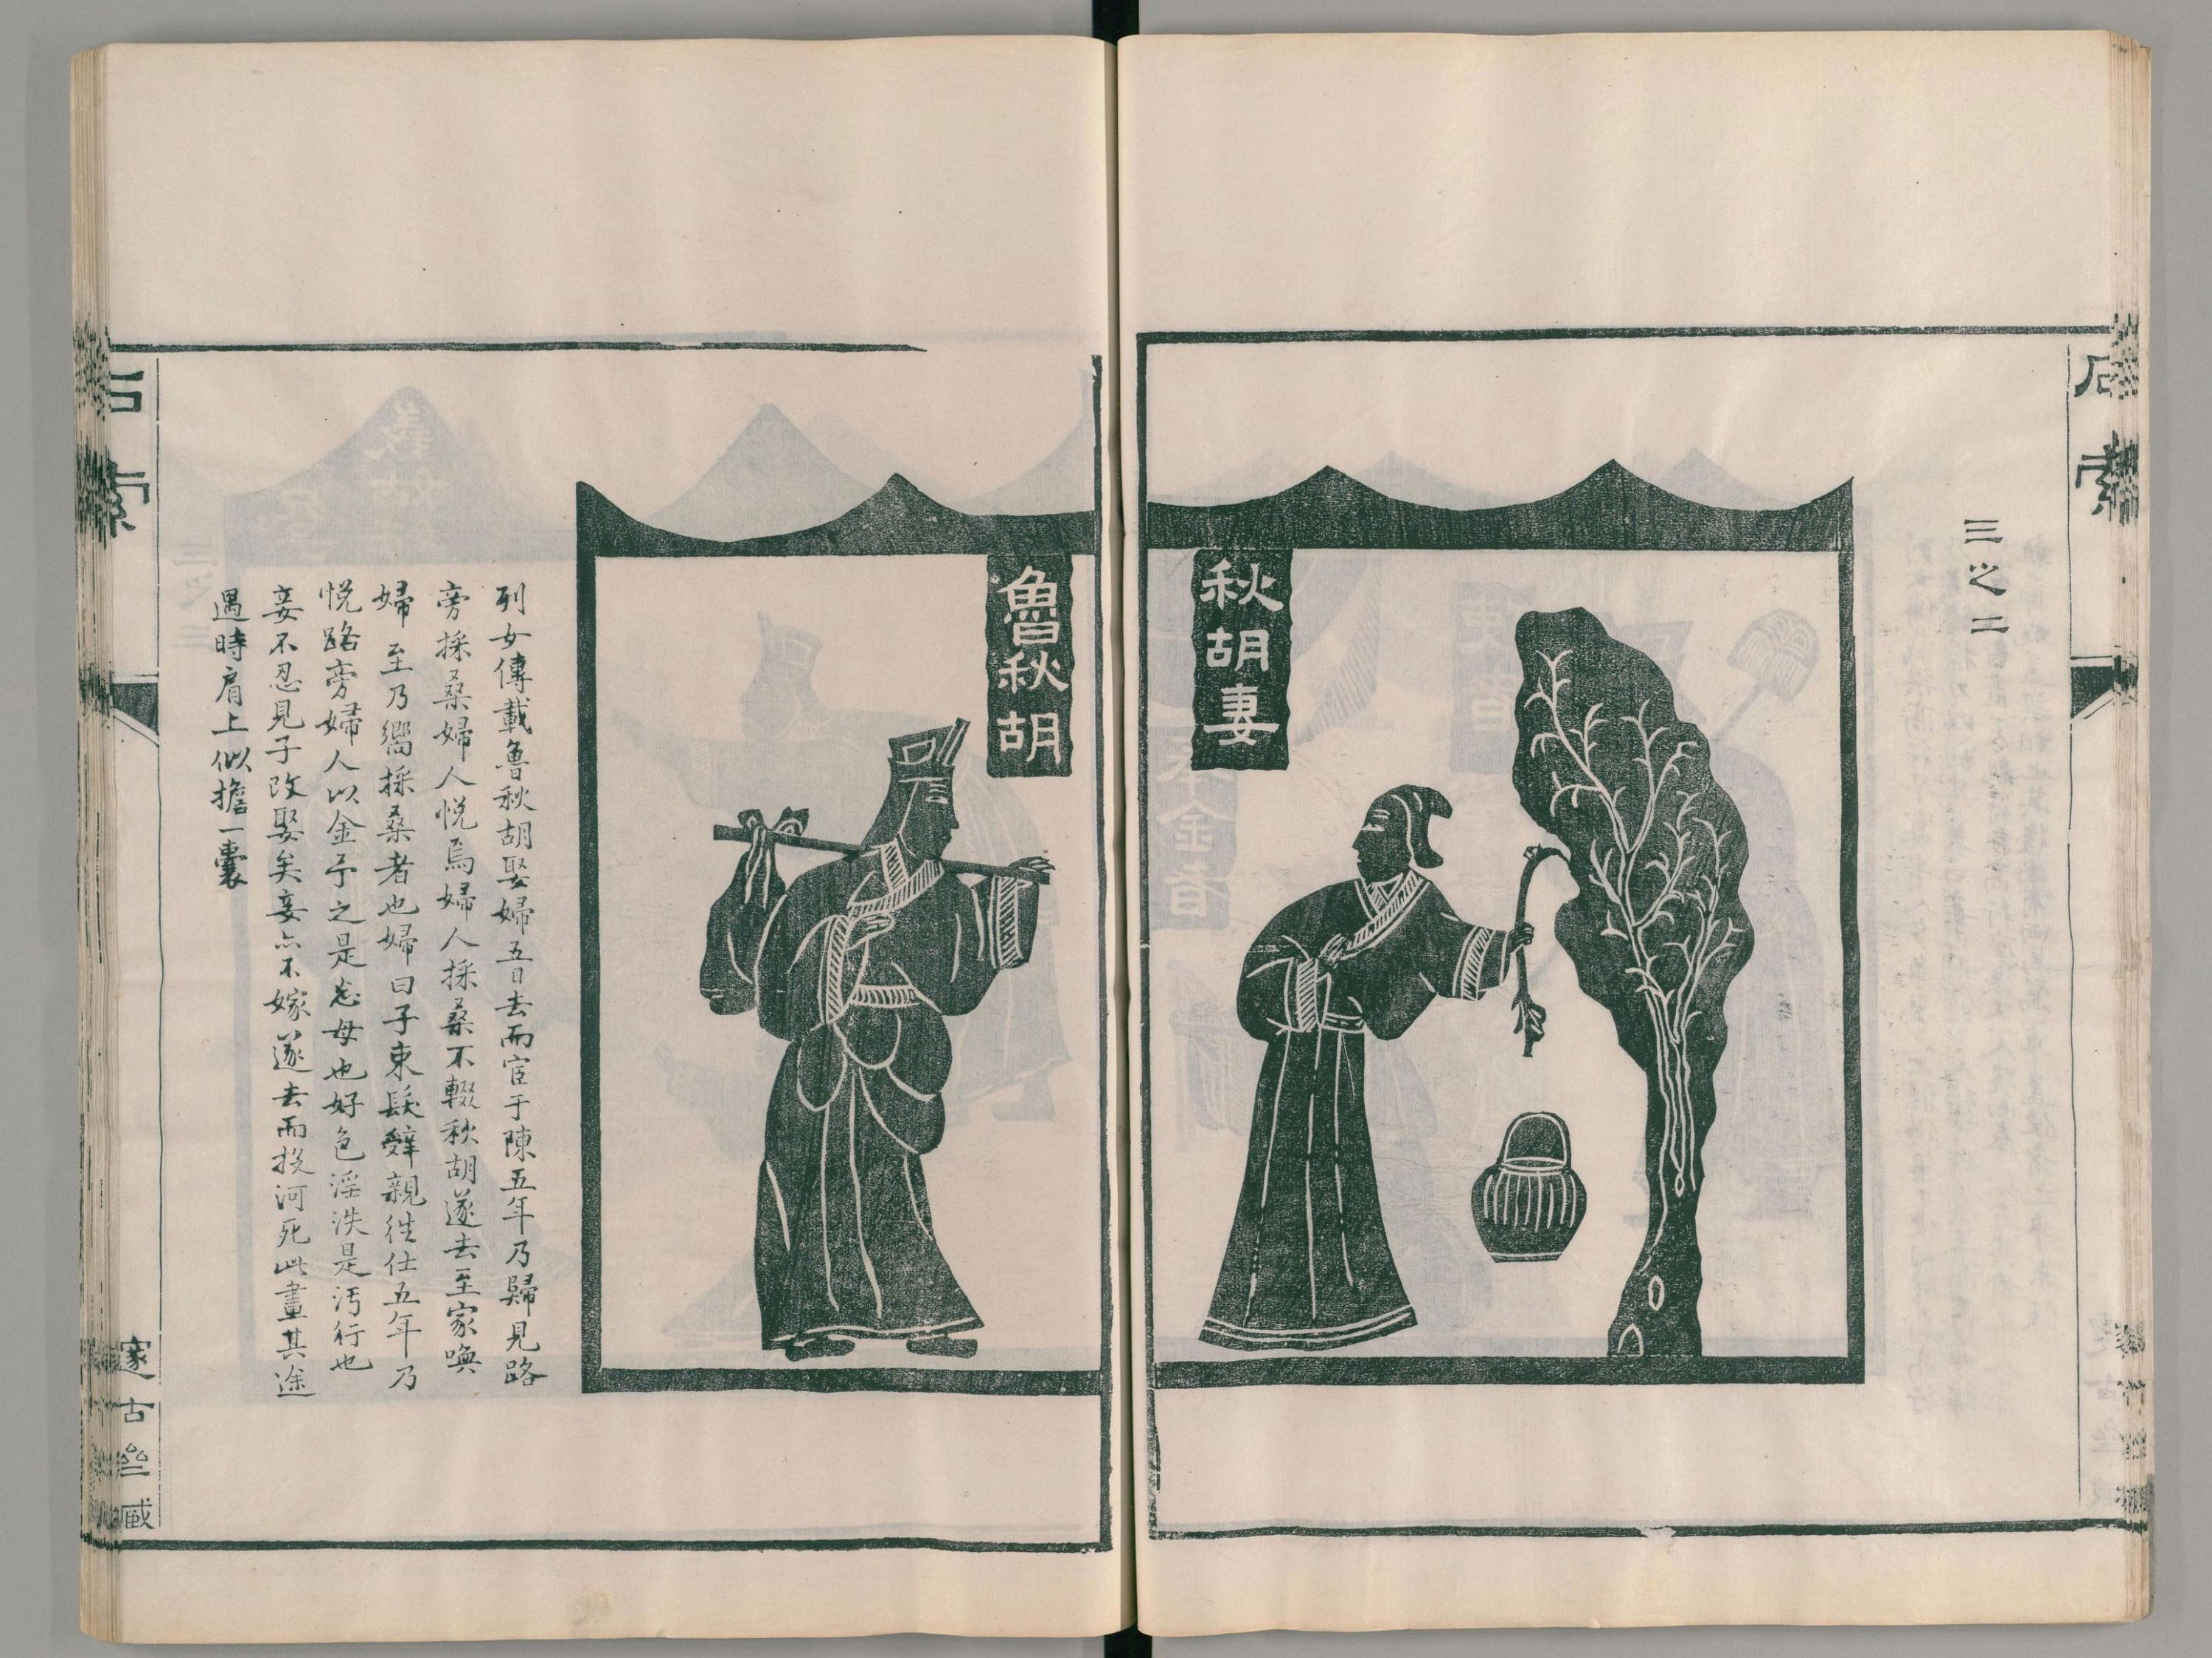 石索
三之二
秋胡妻
魯秋胡
列女傳載魯秋胡娶婦五日去而宦于陳五年乃歸見路
旁採桑婦人悅焉婦人採桑不輟秋胡遂去至家喚
婦至乃嚮採桑者也婦曰子束髮辭親往仕五年乃
悅路旁婦人以金予之是忘母也好色淫泆是污行也
妾不忍見子改娶矣妾亦不嫁遂去而投河死此畫其途
遇時肩上似擔一囊
石索
邃古𡌶臧